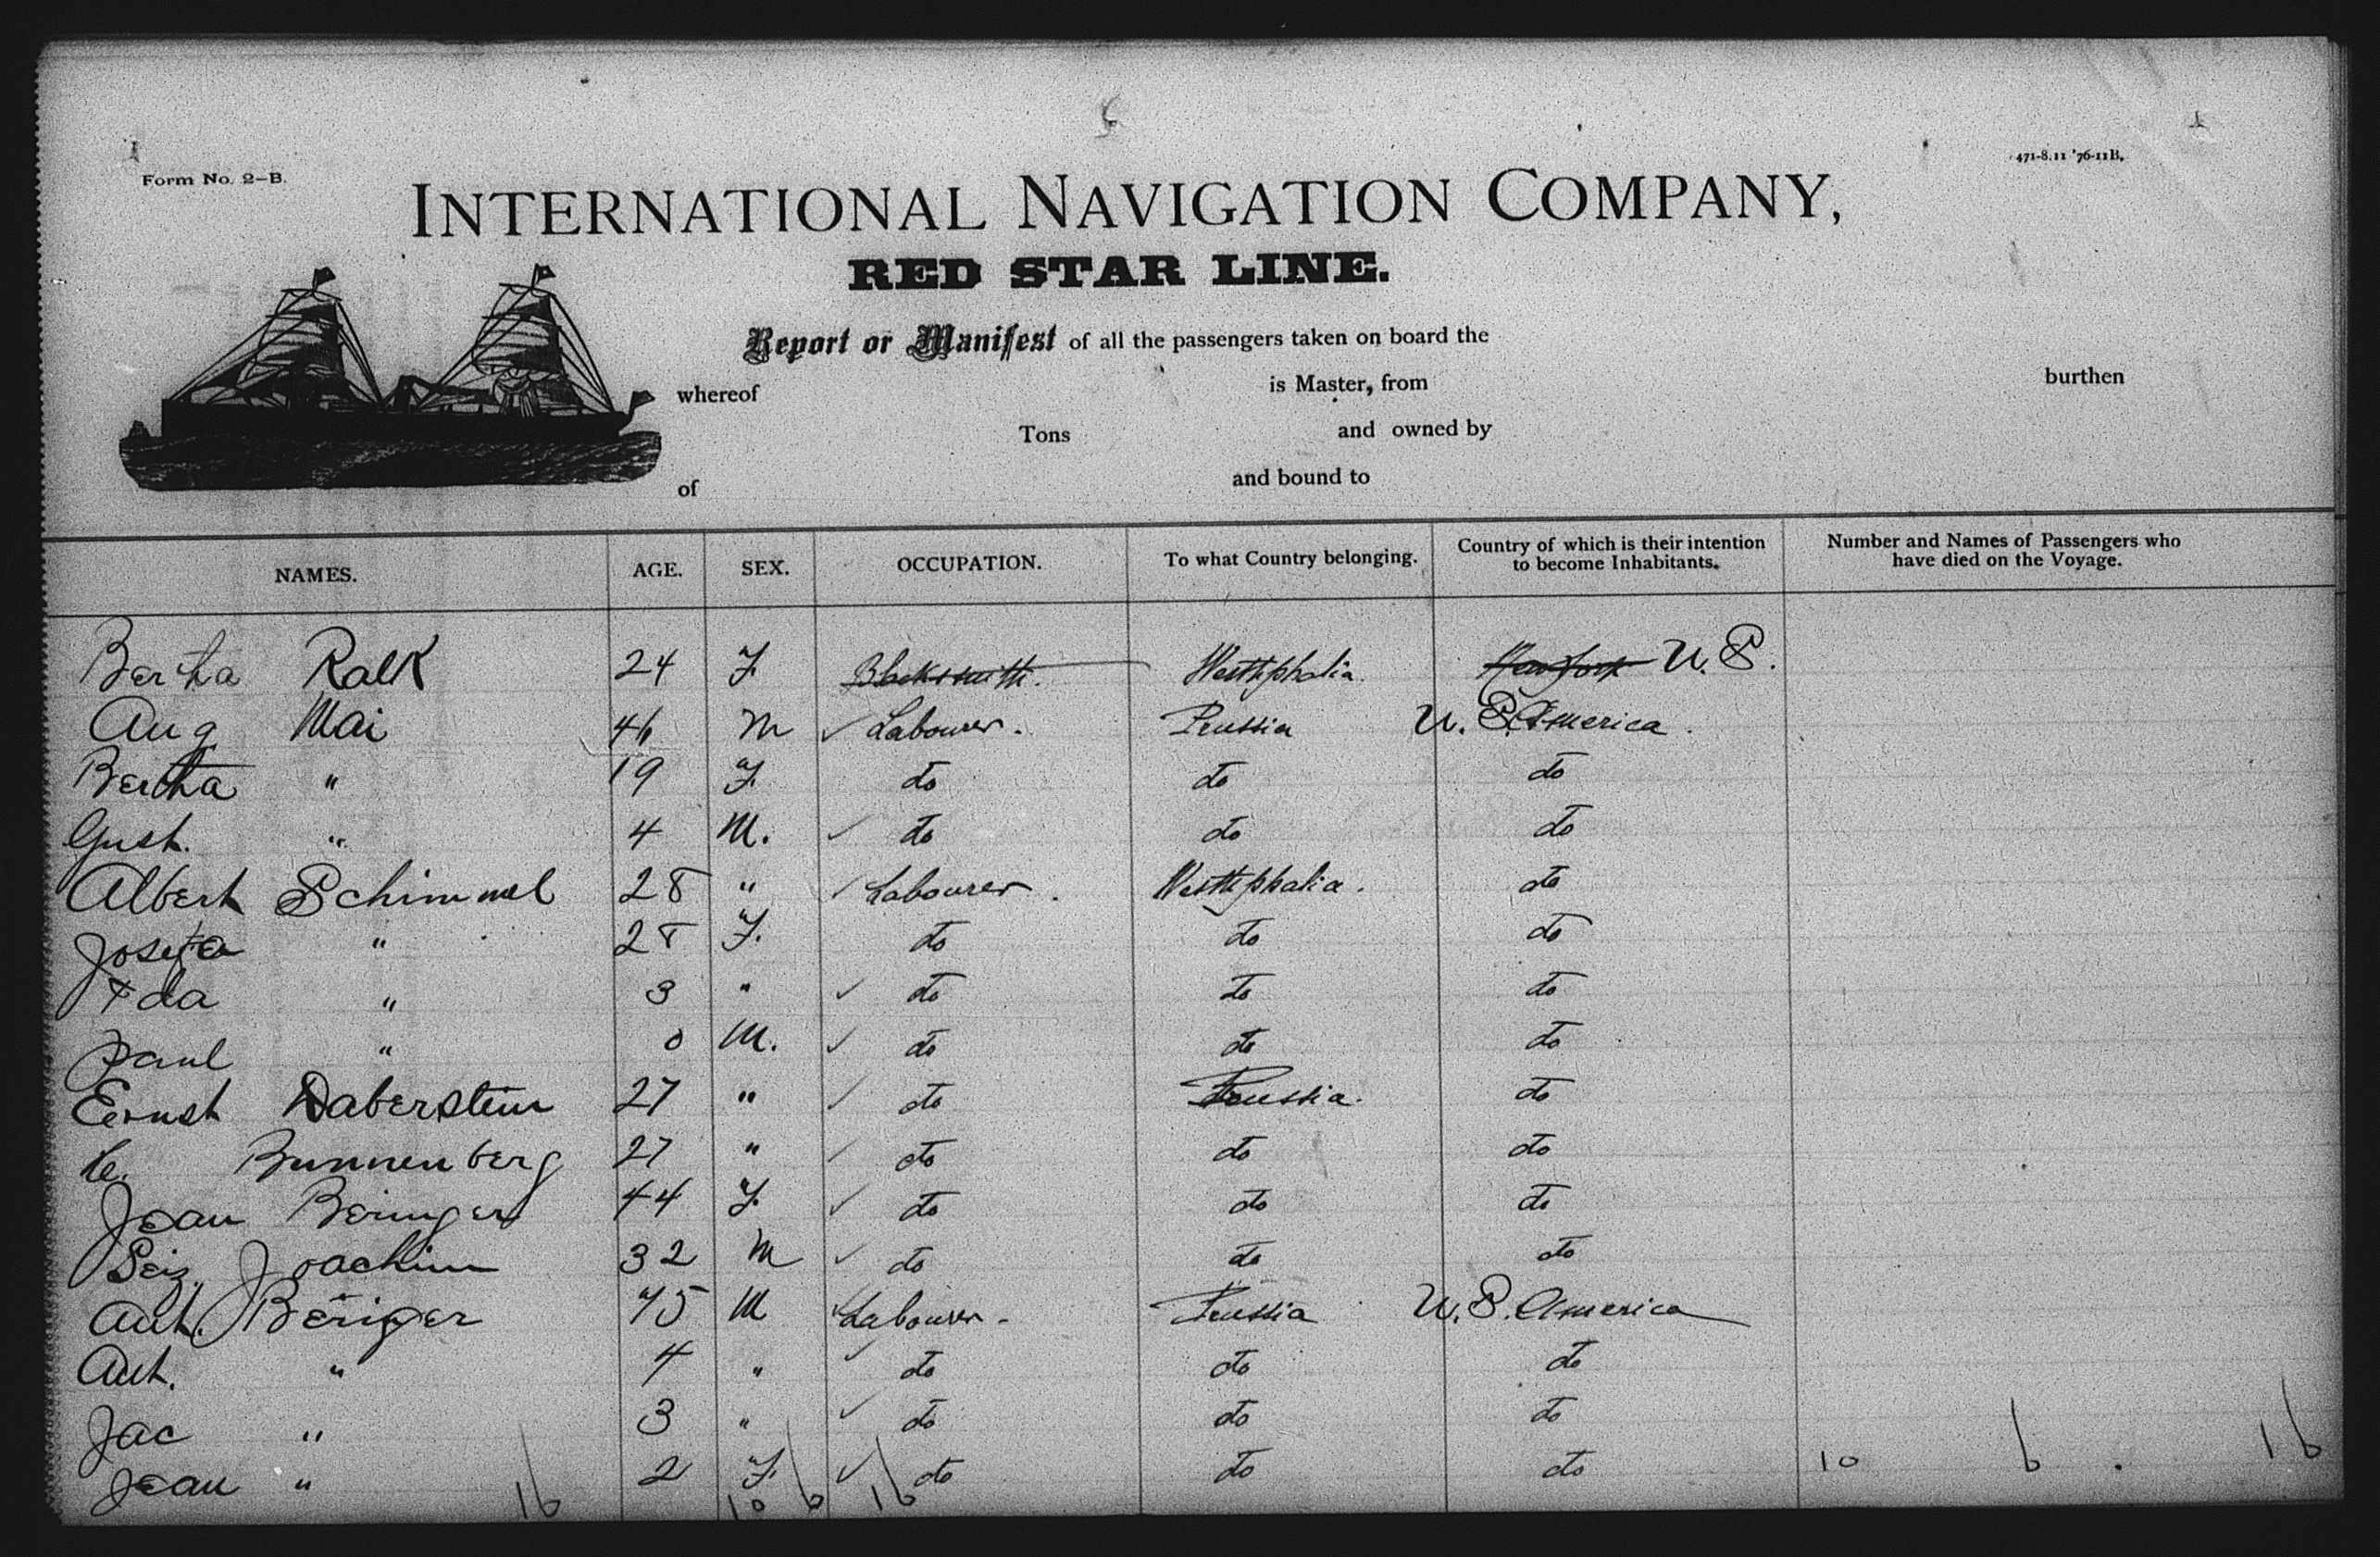 Form No. 2-B.
471-8.11 '76-11B.
INTERNATIONAL NAVIGATION COMPANY,
RED STAR LINE.
Report or Manifest of all the passengers taken on board the
whereof is Master, from burthen
Tons and owned by
of and bound to
NAMES. AGE. SEX. OCCUPATION. To what Country belonging. Country of which is their intention to become Inhabitants. Number and Names of Passengers who have died on the Voyage.
Bertha Ralk 24 F. Blacksmith. Westphalia. New York U.S.
Aug Mai 46 M Labourer. Prussia U.S. America.
Bertha " 19 F. do do do
Gust. " 4 M. do do do
Albert Schimmel 28 " Labourer. Westphalia. do
Josefa " 28 F. do do do
Ida " 3 " do do do
Paul " 0 M. do do do
Ernst Daberstein 27 " do Prussia. do
C. Bunnenberg 27 " do do do
Jean Beringer 44 F. do do do
Joachim 32 M do do do
Ant. Beriger 45 M Labourer. Prussia U.S. America
Ant. " 4 " do do do
Jac " 3 " do do do
Jean " 2 F. do do do
16 10 6 16 10 6 16